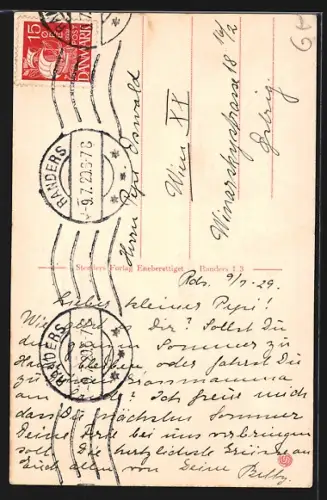 15
ØRE
POST
DANMARK
RANDERS
-9.7.29.6-7 E
RANDERS
Herrn Pepi Oswald
Wien XX
Winarskystrasse 18 16/2
Stenders Forlag Eneberettiget Randers 13
Rds. 9/7. 29.
Lieber kleiner Pepi!
Wie geht es Dir? Sollst du
den ganzen Sommer zu
Hause bleiben oder fährst Du
zu Deiner Grossmamma
am ? Ich freue mich
dass Du nächsten Sommer
Deine Ferien bei uns verbringen
soll. Die herzlichste Grüsse an
Euch allen von Deine